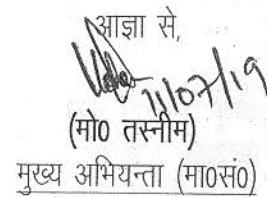 आज्ञा से,
11/07/19
(मो0 तस्नीम)
मुख्य अभियन्ता (मा0सं0)